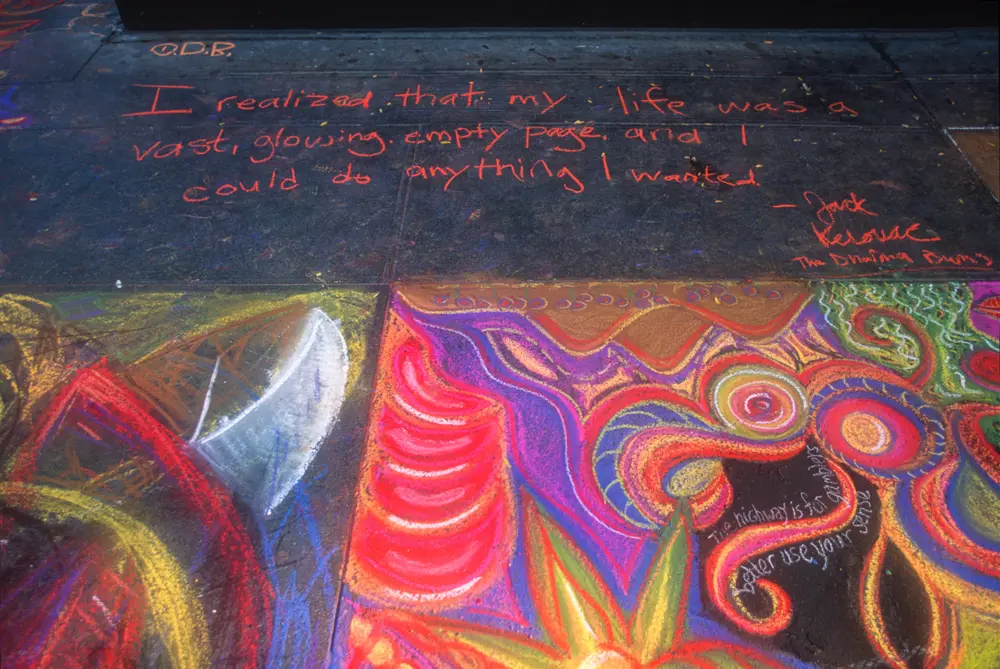 O.D.B.
I realized that my life was a
vast, glowing, empty page, and I
could do anything I wanted
- Jack
Kerouac
The Dharma Bums
The highway is for gamblers
better use your sense